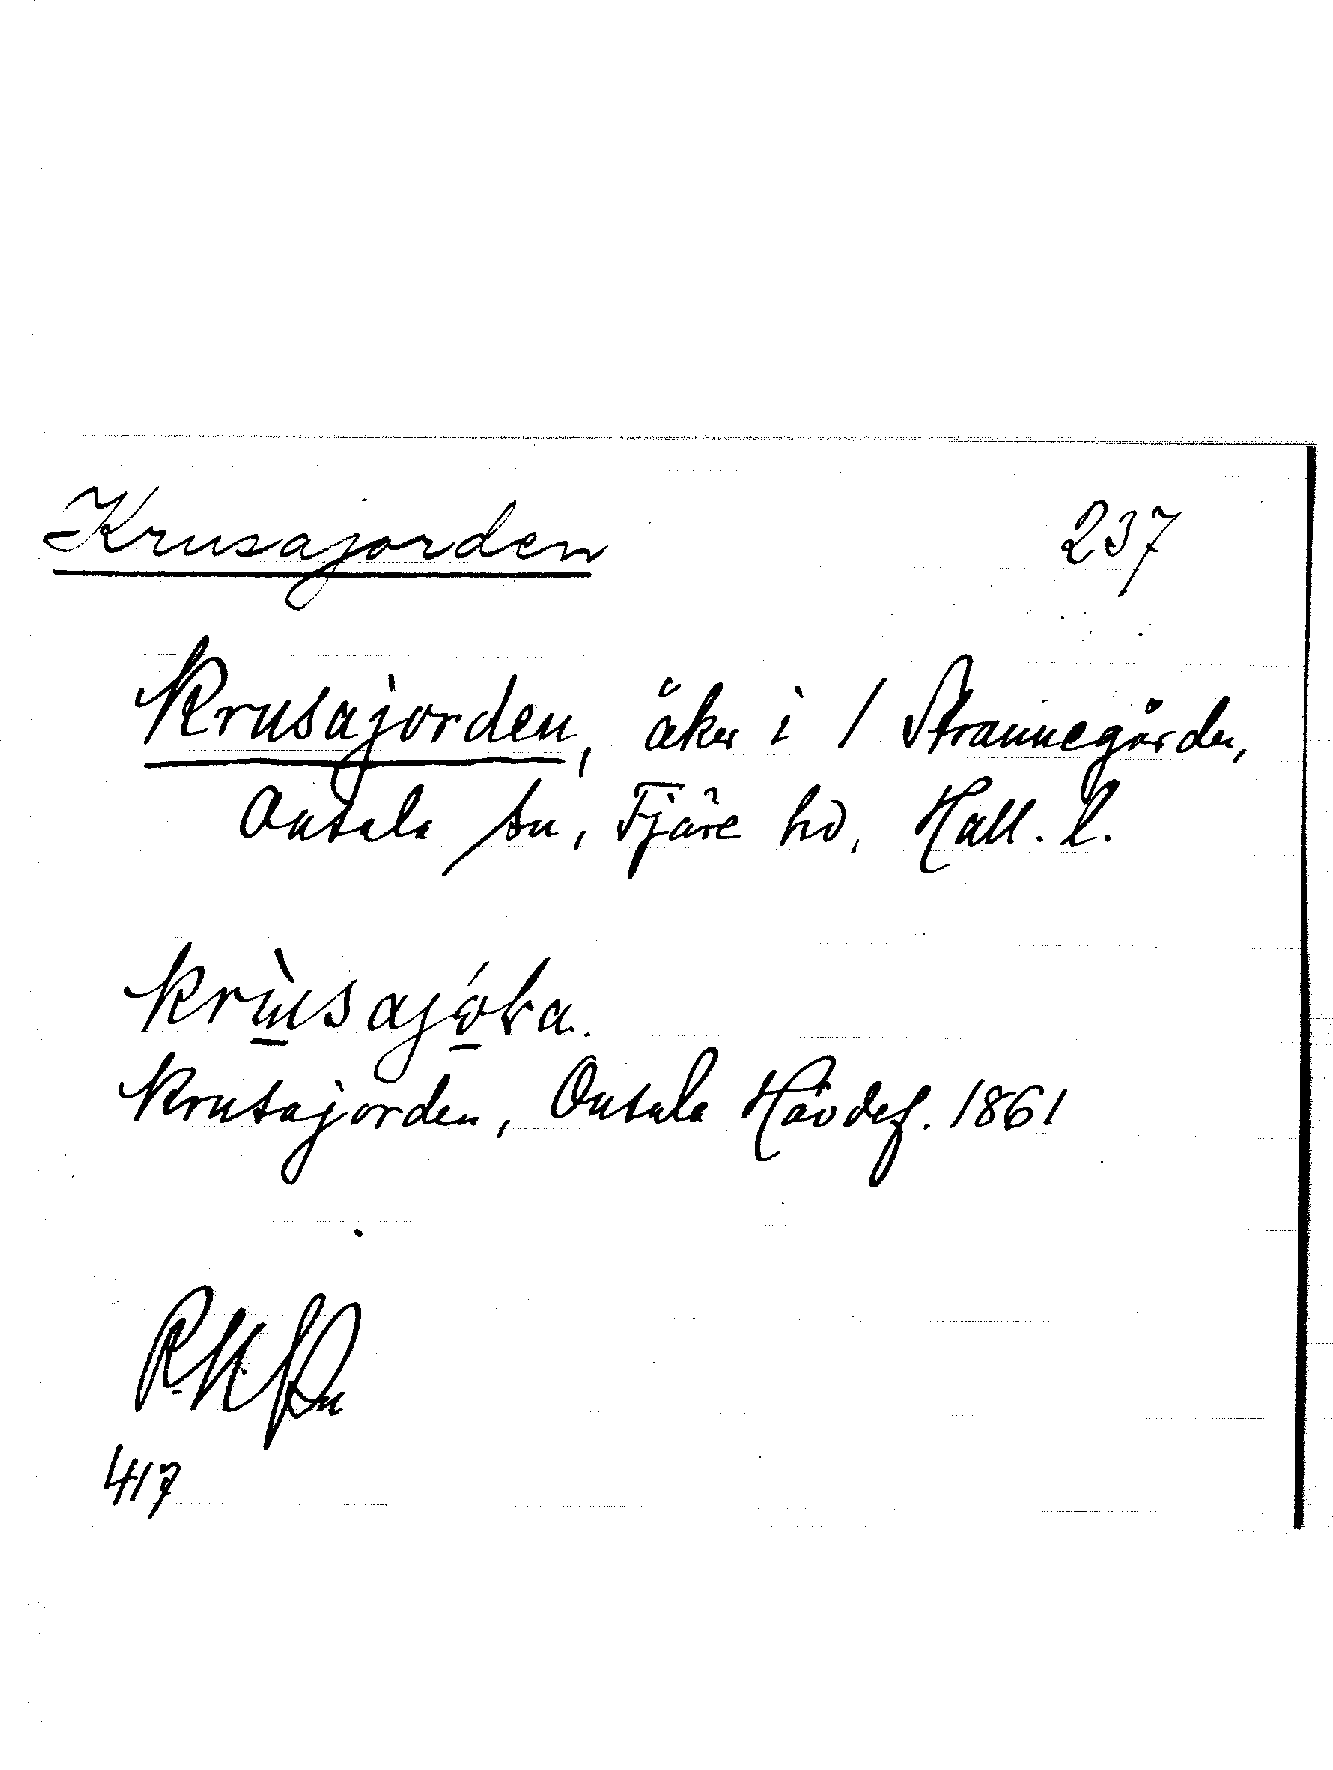 Krusajorden 237
Krusajorden, åker i 1 Strannegården,
Onsala sn, Fjäre hd, Hall. l.
Krusajorden, Onsala Hävdef. 1861
417